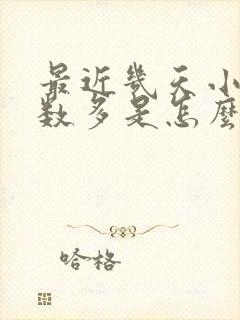 最近几天小
数多是怎麼
哈格